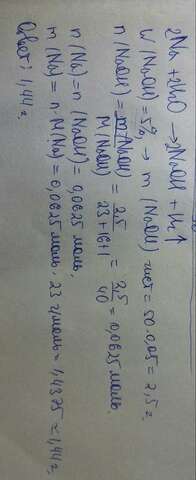 2Na + 2H₂O → 2NaOH + H₂↑
W (NaOH) = 5% → m (NaOH) чист = 50 · 0,05 = 2,5 г.
n (NaOH) = m(NaOH) / M(NaOH) = 2,5 / 23+16+1 = 2,5 / 40 = 0,0625 моль.
n (Na) = n (NaOH) = 0,0625 моль.
m (Na) = n · M(Na) = 0,0625 моль · 23 г/моль = 1,4375 = 1,44 г.
Ответ: 1,44 г.